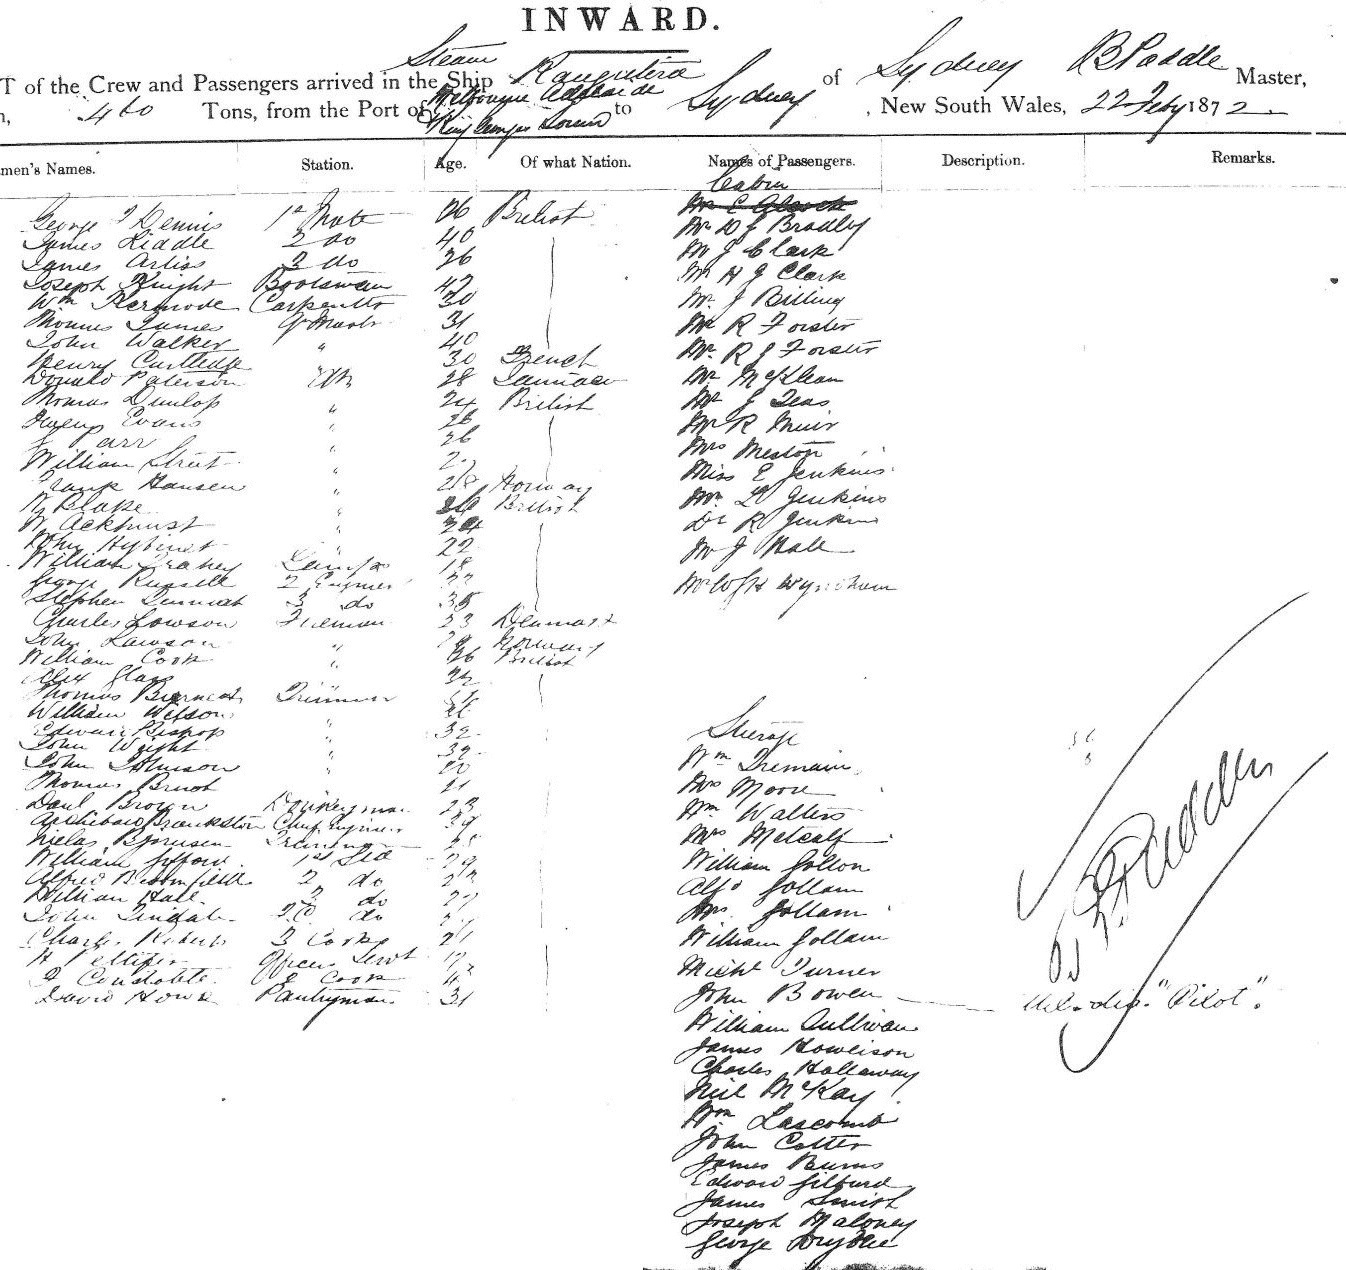 INWARD.
T of the Crew and Passengers arrived in the Ship Steam Rangatira of Sydney B Paddle Master,
460 Tons, from the Port of Melbourne Adelaide King Georges Sound to Sydney, New South Wales, 22 Feby 1872
men's Names. Station. Age. Of what Nation. Names of Passengers. Description. Remarks.
George Dennis 1st Mate 26 British
James Liddle 2 do 40
James Artiss 3 do 26
Joseph Knight Boatswain 42
Wm Kermode Carpenter 30
Thomas James 31
John Walker " 40
Henry Curtledge 30 French
Donald Paterson AB 28
Thomas Dunlop " 24 British
Evans " 26
Parr " 26
William Street "
Frank Hansen " 28 Norway
Blake " British
W Ackhurst " 24
John " 22
William 18
George Russell 2 Engineer
Stephen 3 do 35
Charles Lowson Fireman 23 Denmark
John Lawson " Norway
William Cook " 26 British
Alex Glass 32
Thomas Trimmer
William Wilson "
Edward Bishop " 32
John Wright " 32
John Johnson "
Thomas
Danl Brown Donkeyman 23
Archibald Brankston Chief Engineer 39
Nielas
William 1st Std 29
Alfred Bloomfield 2 do
William Hall do
John Tindale do
Charles Roberts 3 Cook 21
H Pettifer Officers Servt
Constable Cook
David Howe Pantryman 31
Cabin
Mr E
Mr D J Bradley
Mr J Clark
Mr H J Clark
Mr. J Billing
Mr R Forster
Mr. R J Forster
Mr McKlean
Mr J Teas
Mr R Muir
Mrs Meston
Miss E Jenkins
Mr L Jenkins
Dr R Jenkins
Mr J Hall
Wyndham
Steerage
Wm Tremain
Mrs Moore
Wm Walters
Mrs Metcalf
William Gollan
Alfd Gollam
Mrs. Gollam
William Gollam
Michl Turner
John Bowen "Pilot".
William Sullivan
James Howieson
Charles Hallaway
Neil McKay
Wm Lascomb
John Cotter
James Burns
Edward Gilburd
James Smith
Joseph Maloney
George
B. Paddle